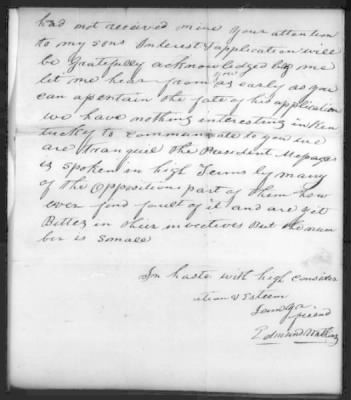 had not received mine Your attention
to my sons Interest & application will
be gratefully acknowledged by me
let me hear from you as early as you
can asentain the fate of his application
we have nothing interesting in Ken
tucky to communicate to you we
are tranquil the President Message
is spoken in high Terms by many
of the Opposition part of them how
ever find fault of it and are yet
Bitter in their invectives But the num
ber is small
In haste with high consider
ation & Esteem
friend
Edmund